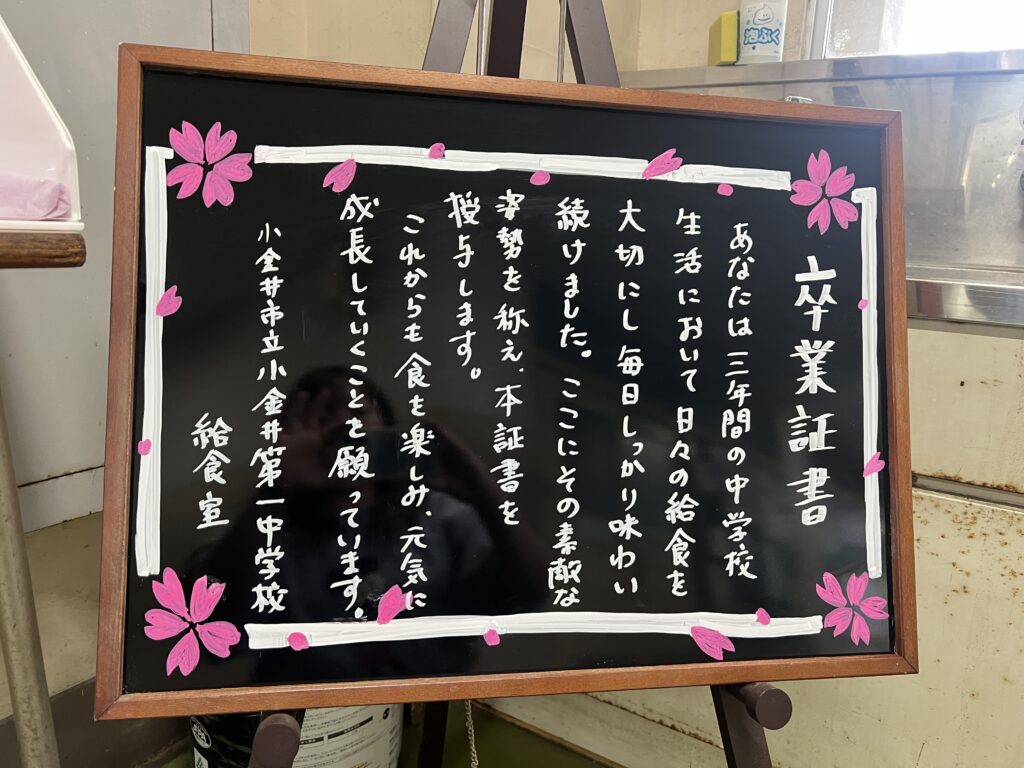 卒業証書
あなたは三年間の中学校
生活において日々の給食を
大切にし毎日しっかり味わい
続けました。ここにその素敵な
姿勢を称え、本証書を
授与します。
これからも食を楽しみ、元気に
成長していくことを願っています。
小金井市立小金井第一中学校
給食室
泡ぶく